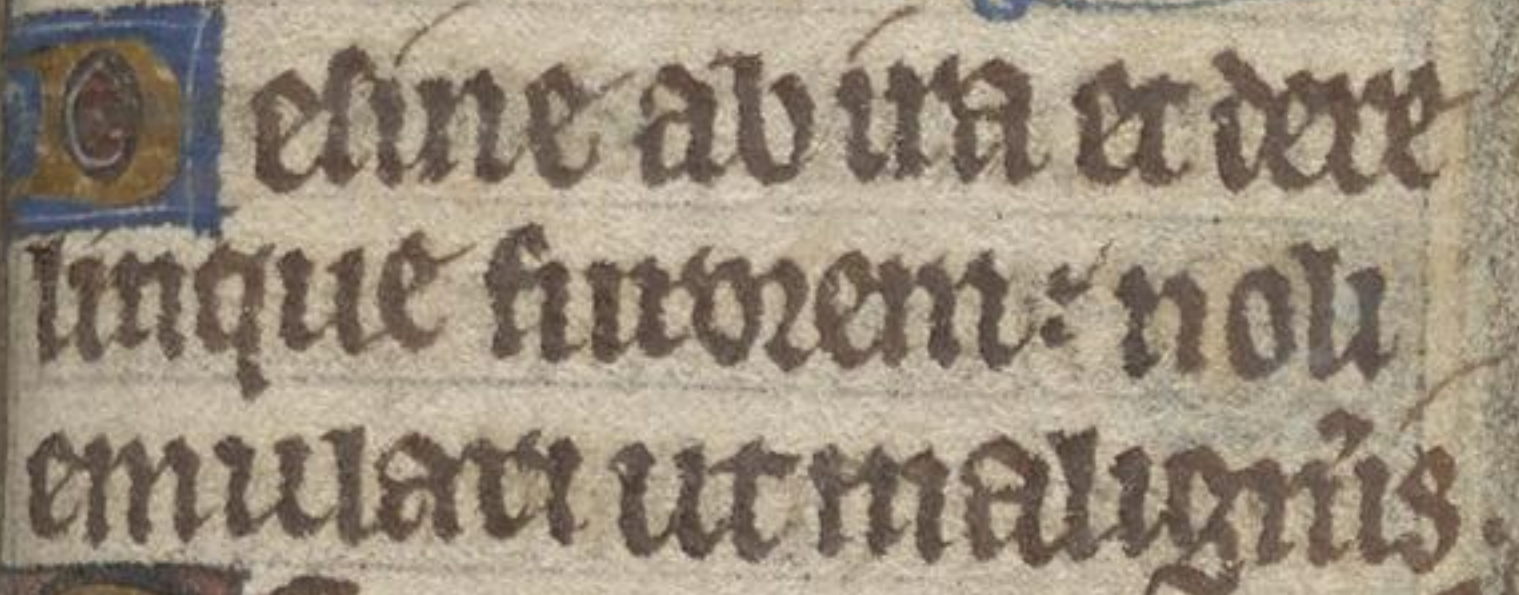 Desine ab ira et dere
linque furorem: noli
emulari ut malign̾is.